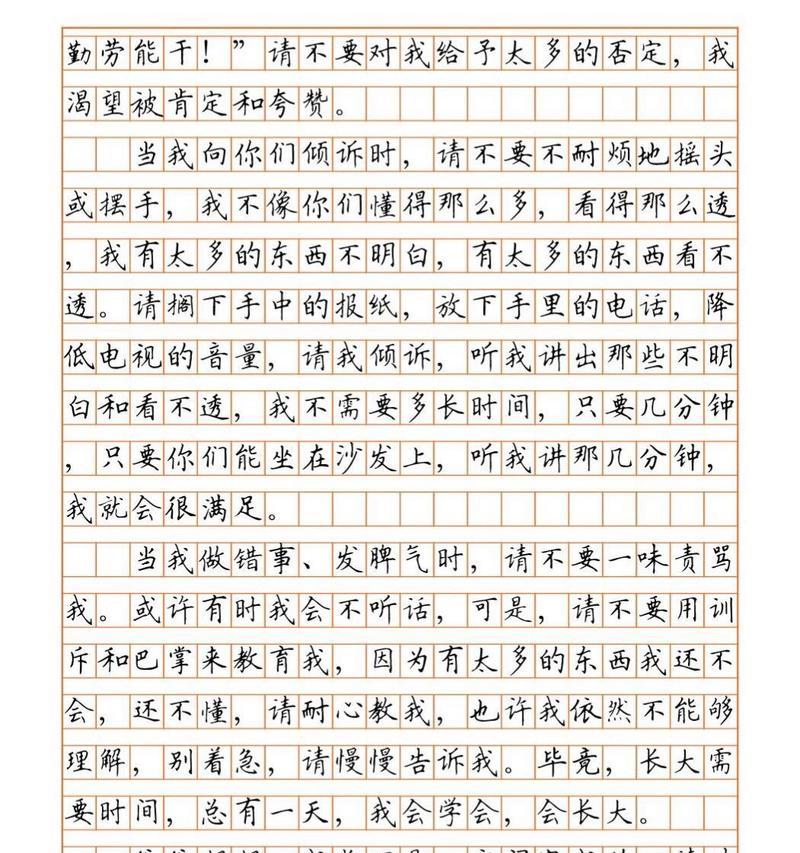 勤劳能干！”请不要对我给予太多的否定，我
渴望被肯定和夸赞。
当我向你们倾诉时，请不要不耐烦地摇头
或摆手，我不像你们懂得那么多，看得那么透
，我有太多的东西不明白，有太多的东西看不
透。请搁下手中的报纸，放下手里的电话，降
低电视的音量，请我倾诉，听我讲出那些不明
白和看不透，我不需要多长时间，只要几分钟
，只要你们能坐在沙发上，听我讲那几分钟，
我就会很满足。
当我做错事、发脾气时，请不要一味责骂
我。或许有时我会不听话，可是，请不要用训
斥和巴掌来教育我，因为有太多的东西我还不
会，还不懂，请耐心教我，也许我依然不能够
理解，别着急，请慢慢告诉我。毕竟，长大需
要时间，总有一天，我会学会，会长大。